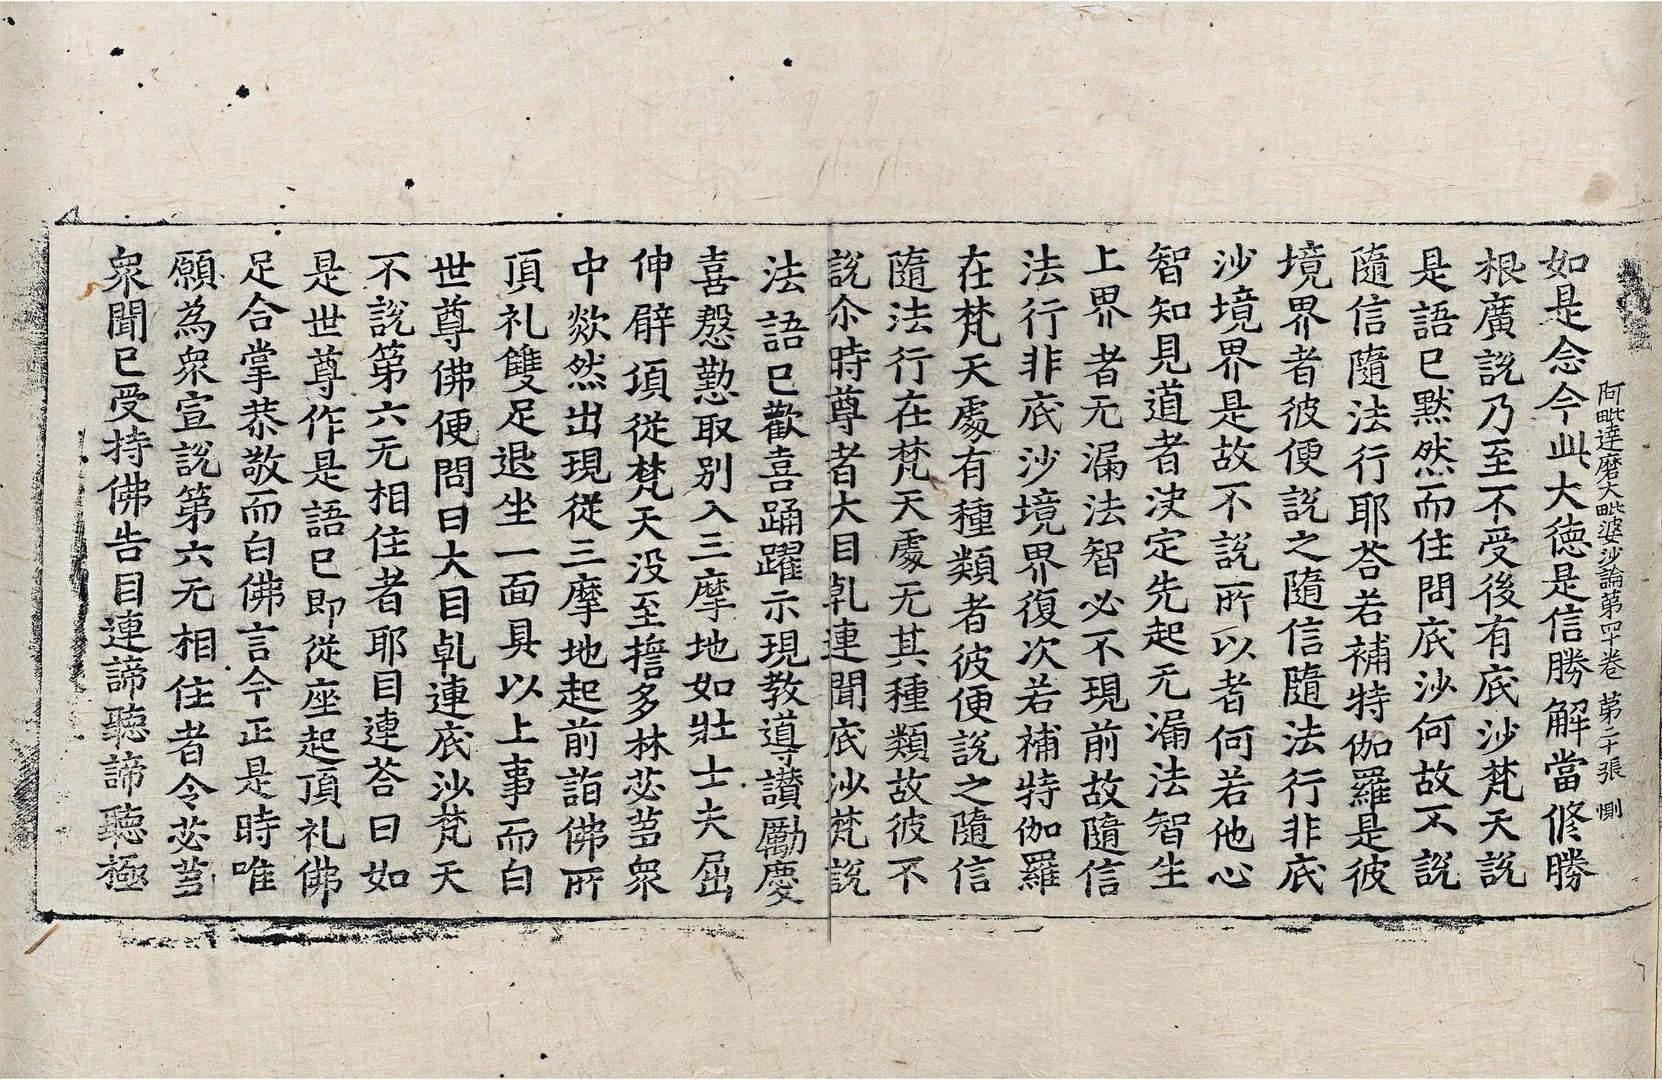 阿毗達磨大毗婆沙論苐四十卷 苐二十張 惻
如是念今此大德是信勝解當修勝
根廣說乃至不受後有底沙梵天說
是語已黙然而住問底沙何故不說
隨信隨法行耶荅若補特伽羅是彼
境界者彼便說之隨信隨法行非底
沙境界是故不說所以者何若他心
智知見道者决定先起无漏法智生
上界者无漏法智必不現前故隨信
法行非底沙境界復次若補特伽羅
在梵天處有種類者彼便說之隨信
隨法行在梵天處无其種類故彼不
說尒時尊者大目乹連聞底沙梵說
法語已歡喜踊躍示現教導讃勵慶
喜慇懃取別入三摩地如壯士夫屈
伸臂頃從梵天没至擔多林苾芻衆
中欻然出現從三摩地起前詣佛所
頂礼雙足退坐一面具以上事而白
世尊佛便問曰大目乹連底沙梵天
不說苐六无相住者耶目連荅曰如
是世尊作是語已即從座起頂礼佛
足合掌恭敬而白佛言今正是時唯
願為衆宣說苐六无相住者令苾芻
衆聞已受持佛告目連諦聽諦聽極